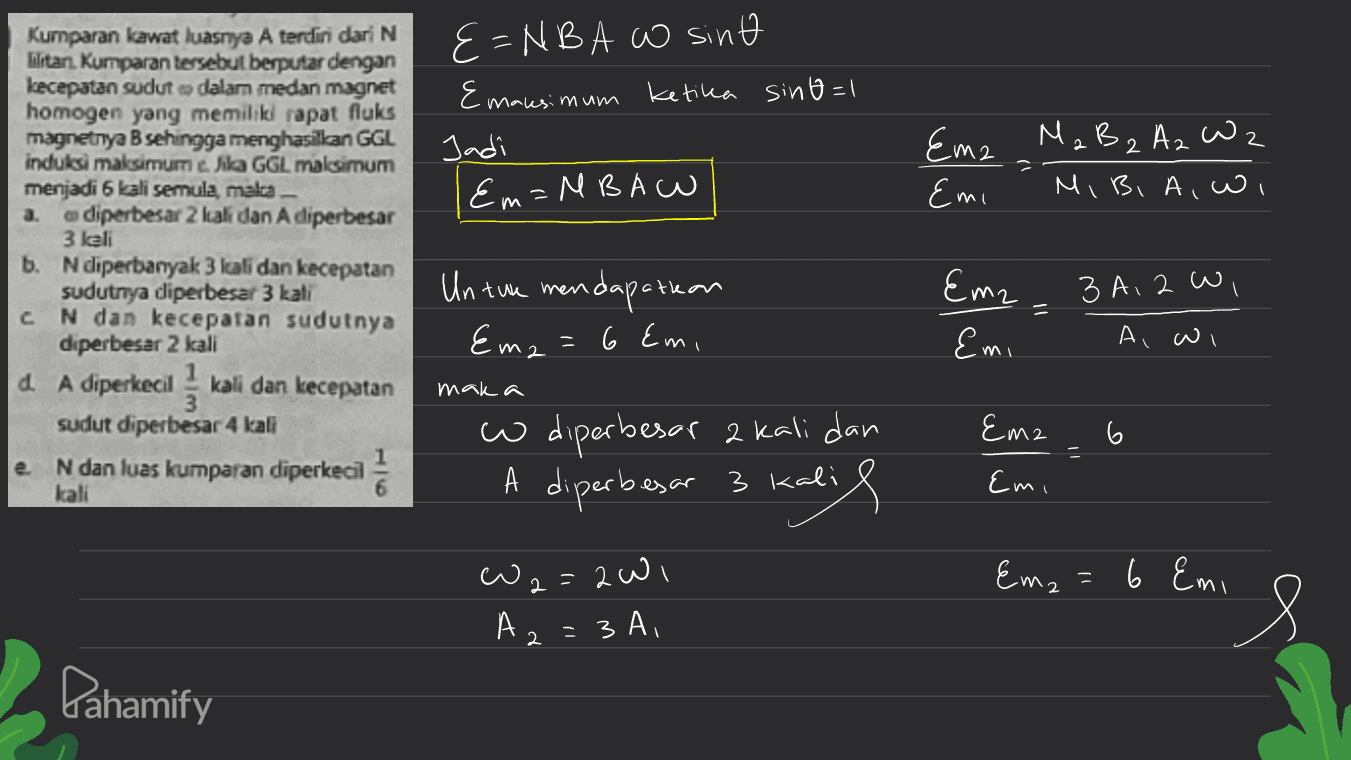 Kumparan kawat luasnya A terdiri dari N
lilitan. Kumparan tersebut berputar dengan
kecepatan sudut ω dalam medan magnet
homogen yang memiliki rapat fluks
magnetnya B sehingga menghasilkan GGL
induksi maksimum ε. Jika GGL maksimum
menjadi 6 kali semula, maka ...
a. ω diperbesar 2 kali dan A diperbesar
3 kali
b. N diperbanyak 3 kali dan kecepatan
sudutnya diperbesar 3 kali
c. N dan kecepatan sudutnya
diperbesar 2 kali
d. A diperkecil 1/3 kali dan kecepatan
sudut diperbesar 4 kali
e. N dan luas kumparan diperkecil 1/6
kali
ε = NBA ω sin θ
ε maksimum ketika sin θ = 1
Jadi
εm = NBAω
Untuk mendapatkan
εm2 = 6 εm1
maka
ω diperbesar 2 kali dan
A diperbesar 3 kali
ω2 = 2ω1
A2 = 3 A1
εm2/εm1 = N2 B2 A2 ω2 / N1 B1 A1 ω1
εm2/εm1 = 3 A1 2 ω1 / A1 ω1
εm2/εm1 = 6
εm2 = 6 εm1
Pahamify